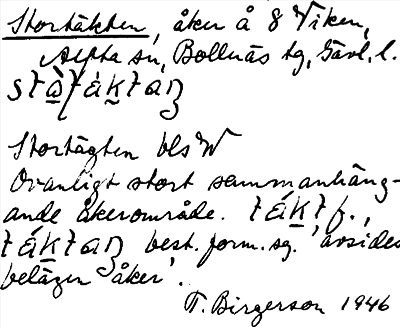 Stortäkten, åker å 8 Viken,
Alfta sn, Bollnäs tg, Gävl. l.
Stortägten bls W
Ovanligt stort sammanhäng-
ande åkerområde. f.,
best. form. sg. 'avsides
belägen åker'.
T. Birgerson 1946